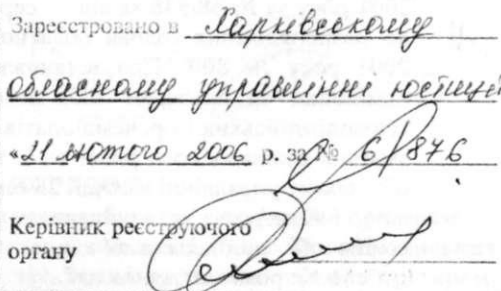 Зареєстровано в Харківському
обласному управлінні юстиції
«21 лютого 2006 р. за № 6/876
Керівник реєструючого
органу